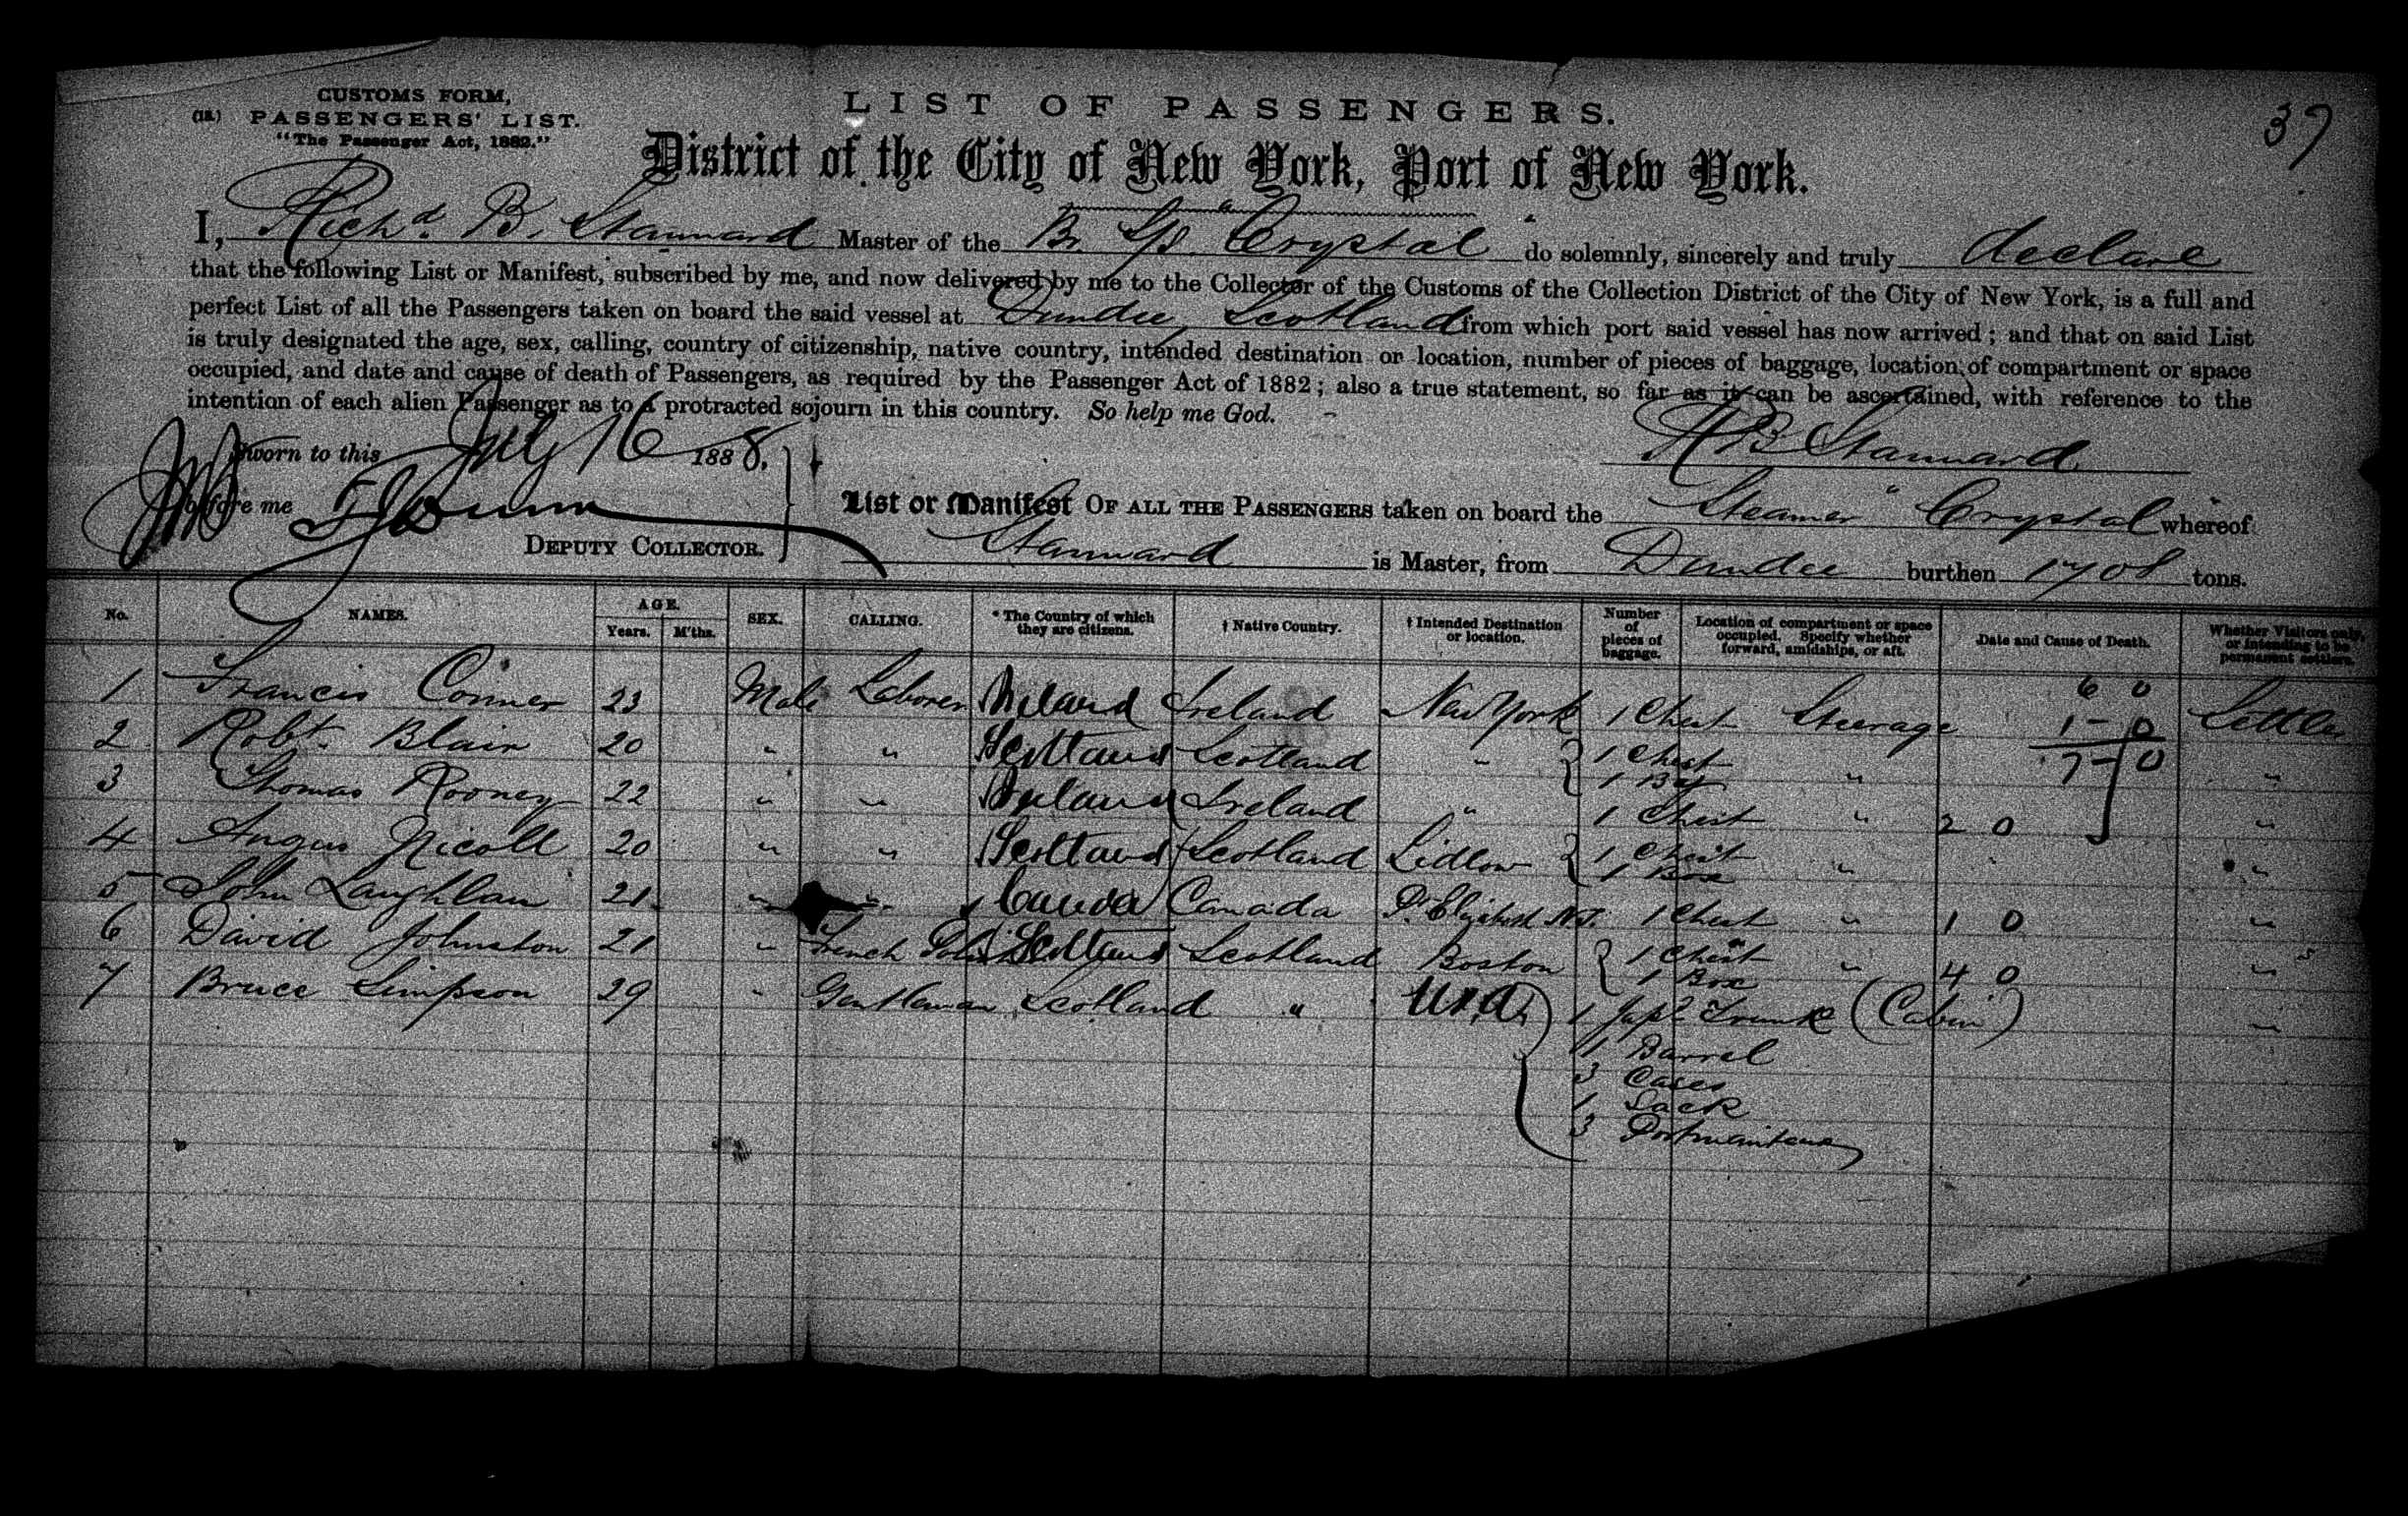 CUSTOMS FORM,
(18.) PASSENGERS' LIST.
"The Passenger Act, 1882."
LIST OF PASSENGERS.
39
District of the City of New York, Port of New York.
I, Richd. B. Stannard Master of the Br. S/S. "Crystal" do solemnly, sincerely and truly declare
that the following List or Manifest, subscribed by me, and now delivered by me to the Collector of the Customs of the Collection District of the City of New York, is a full and
perfect List of all the Passengers taken on board the said vessel at Dundee, Scotland from which port said vessel has now arrived; and that on said List
is truly designated the age, sex, calling, country of citizenship, native country, intended destination or location, number of pieces of baggage, location of compartment or space
occupied, and date and cause of death of Passengers, as required by the Passenger Act of 1882; also a true statement, so far as it can be ascertained, with reference to the
intention of each alien Passenger as to a protracted sojourn in this country. So help me God.
R B Stannard
Sworn to this July 16 1888.
before me
DEPUTY COLLECTOR.
List or Manifest OF ALL THE PASSENGERS taken on board the Steamer "Crystal whereof
Stannard is Master, from Dundee burthen 1708 tons.
No. NAMES. AGE. Years. M'ths. SEX. CALLING. * The Country of which they are citizens. † Native Country. † Intended Destination or location. Number of pieces of baggage. Location of compartment or space occupied. Specify whether forward, amidships, or aft. Date and Cause of Death. Whether Visitors only, or intending to be permanent settlers.
6 0
1 Francis Conner 23 Male Laborer Ireland Ireland New York 1 Chest Steerage 1 - 0 Settle
2 Robt. Blair 20 " " Scotland Scotland " { 1 Chest " 7 - 0 "
3 Thomas Rooney 22 " " Ireland Ireland " 1 Chest " 2 0 "
4 Angus Nicoll 20 " " Scotland Scotland Lidlow { 1 Chest 1 Box " "
5 John Laughlan 21 " " Canada Canada Pt. Elizabeth N.J. 1 Chest " 1 0 "
6 David Johnston 21 " French Scotland Scotland Boston { 1 Chest 1 Box " 4 0 "
7 Bruce Simpson 29 " Gentleman Scotland " U.S.A. 1 Trunk (Cabin) "
1 Barrel
3 Cases
1 Sack
3 Portmanteaus